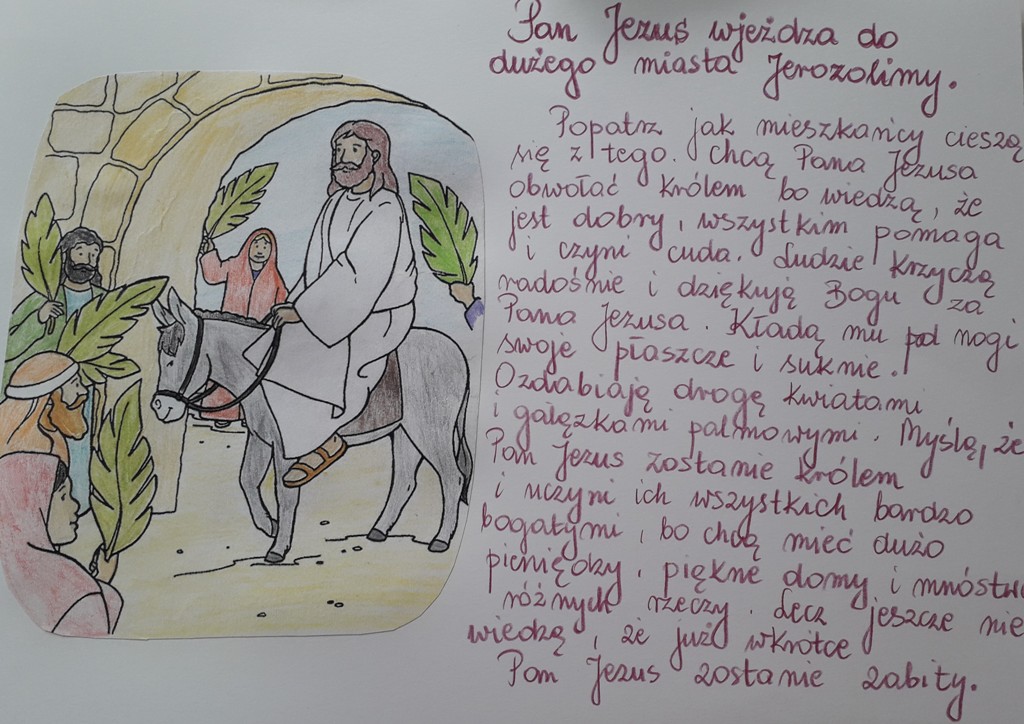 Pan Jezus wjeżdza do
dużego miasta Jerozolimy.
Popatrz jak mieszkańcy cieszą
się z tego. Chcą Pana Jezusa
obwołać królem bo wiedzą, że
jest dobry, wszystkim pomaga
i czyni cuda. Ludzie krzyczą
radośnie i dziękują Bogu za
Pana Jezusa. Kładą mu pod nogi
swoje płaszcze i suknie.
Ozdabiają drogę kwiatami
i gałązkami palmowymi. Myślą, że
Pan Jezus zostanie królem
i uczyni ich wszystkich bardzo
bogatymi, bo chcą mieć dużo
pieniędzy, piękne domy i mnóstwo
różnych rzeczy. Lecz jeszcze nie
wiedzą, że już wkrótce
Pan Jezus zostanie zabity.